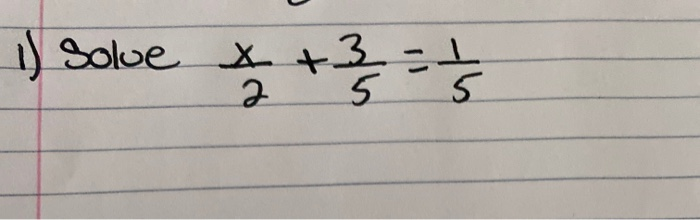 1) Solve x/2 + 3/5 = 1/5